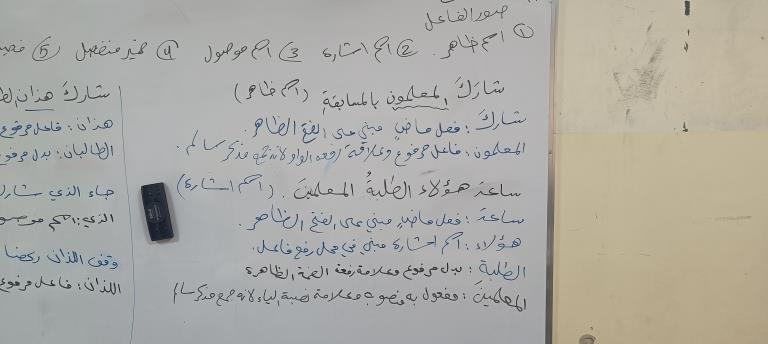 صور الفاعل
① اسم ظاهر. ② اسم اشارة ③ اسم موصول ④ ضمير منفصل ⑤
شارَكَ المعلمون بالمسابقةِ (اسم ظاهر)
شاركَ : فعل ماضٍ مبني على الفتح الظاهر.
المعلمون : فاعل مرفوع وعلامة رفعه الواو لانه جمع مذكر سالم.
ساعدَ هؤلاء الطلبةُ المعلمينَ. (اسم اشارة)
ساعدَ : فعل ماضٍ مبني على الفتح الظاهر.
هؤلاء : اسم اشارة مبني في محل رفع فاعل.
الطلبة : بدل مرفوع وعلامة رفعه الضمة الظاهرة
المعلمينَ : مفعول به منصوب وعلامة نصبة الياء لانه جمع مذكر سالم
شاركَ هذان
هذان : فاعل مرفوع
الطالبان : بدل مرفوع
جاء الذي
الذي : اسم
وقف اللذان ركضا
اللذان : فاعل مرفوع